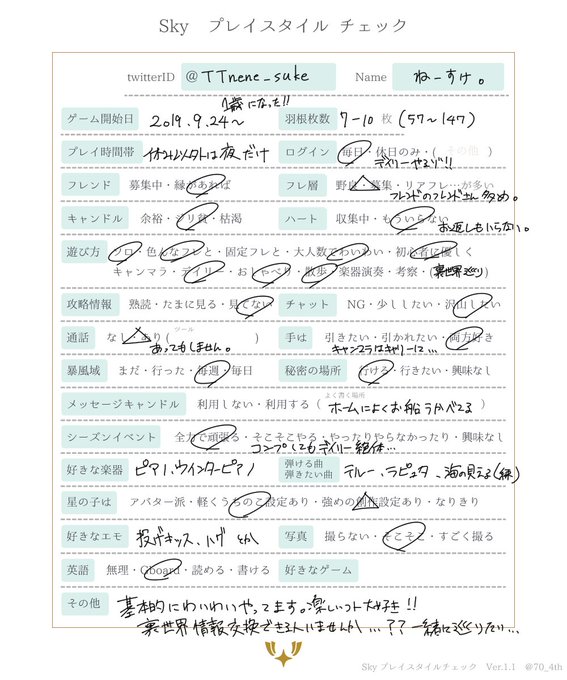 Sky プレイスタイル チェック
twitterID @TTnene_suke Name ねーすけ。
1歳になった!!
ゲーム開始日 2019.9.24〜 羽根枚数 7-10 枚 (57〜147)
プレイ時間帯 イベント以外は夜だけ ログイン 毎日・休日のみ・( その他 )
デイリーやるマン!!
フレンド 募集中・縁があれば フレ層 野良・募集・リアフレ…が多い
フレンドのフレンドさん多め。
キャンドル 余裕・チリ貧・枯渇 ハート 収集中・もういらない
お返しもいらない。
遊び方 ソロ・色んなフレと・固定フレと・大人数でわいわい・初心者に優しく
キャンマラ・デイリー・おしゃべり・散歩・楽器演奏・考察・(裏世界巡り)
攻略情報 熟読・たまに見る・見てない チャット NG・少ししたい・沢山したい
通話 なし・あり ( ツール )
あってもしません。
手は 引きたい・引かれたい・両方好き
キャンマラはキャリーに…
暴風域 まだ・行った・毎週・毎日 秘密の場所 行ける・行きたい・興味なし
メッセージキャンドル 利用しない・利用する ( よく書く場所 ホームによくお船うかべてる )
シーズンイベント 全力で頑張る・そこそこやる・やったりやらなかったり・興味なし
コンプしてもデイリー絶体…
好きな楽器 ピアノ、ウインターピアノ 弾ける曲 弾きたい曲 テルー、ラピュタ、海の見える(練)
星の子は アバター派・軽くうちのこ設定あり・強めの創作設定あり・なりきり
好きなエモ 投げキッス、ハグ とか 写真 撮らない・そこそこ・すごく撮る
英語 無理・Gboard・読める・書ける 好きなゲーム
その他 基本的にわいわいやってます。楽しいコト大好き!!
裏世界情報交換できる人いませんか…?? 一緒に巡りたい…
Sky プレイスタイルチェック Ver.1.1 @70_4th